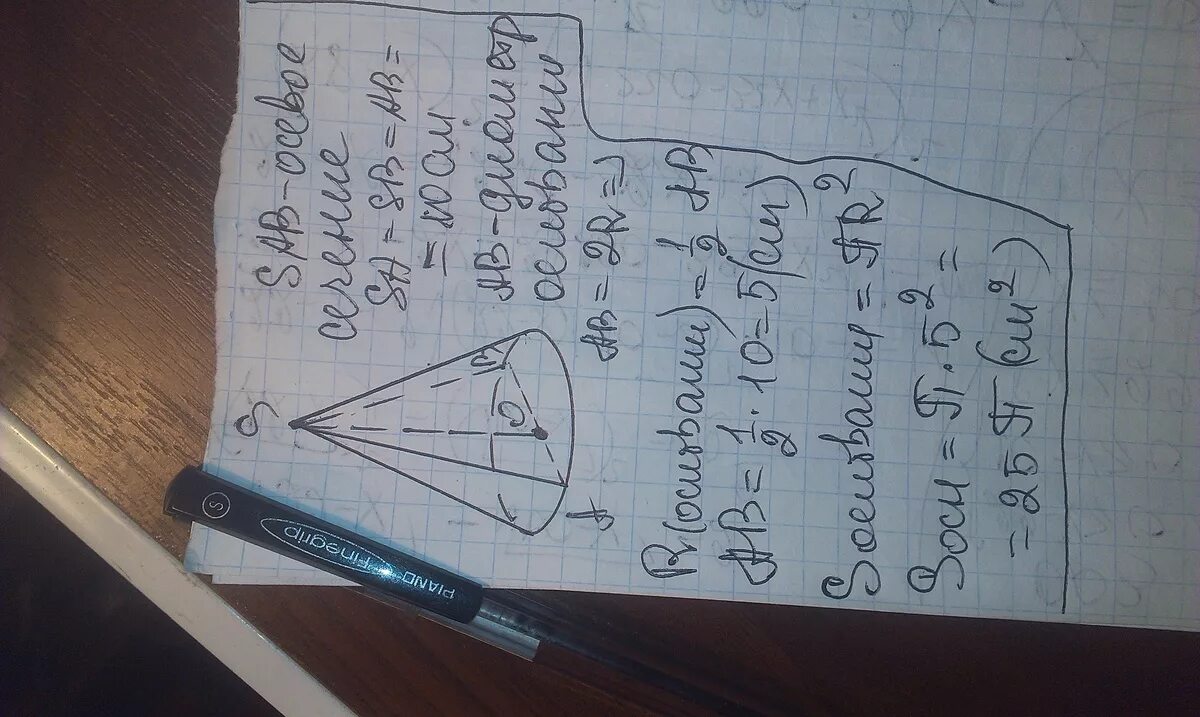 S
SAB - осевое
сечение
SA = SB = AB =
= 10 см
AB - диаметр
основания
AB = 2R =>
O
B
A
R (основания) = 1/2 AB
AB = 1/2 · 10 = 5 (см)
Sоснования = πR²
Sосн = π · 5² =
= 25 π (см²)
S
PIANO Finegrip